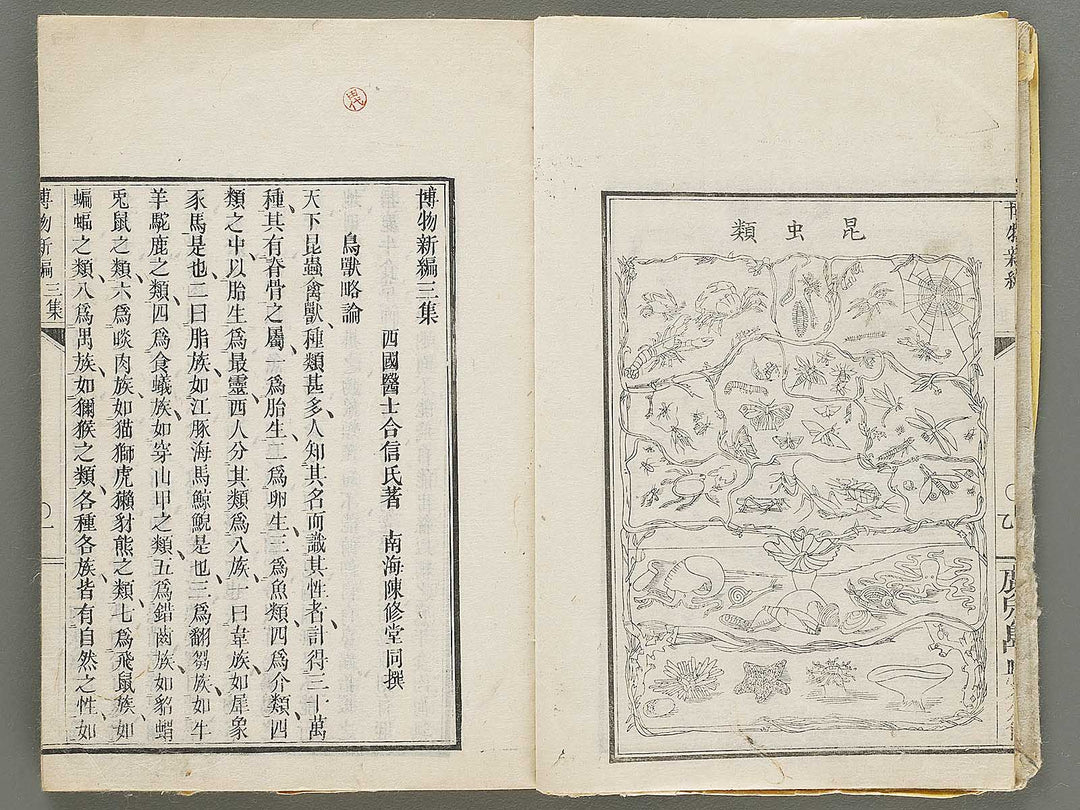 昆虫類
博物新編
博物新編三集
西國醫士合信氏著　南海陳修堂同撰
鳥獸略論
天下昆蟲禽獸種類甚多人知其名而識其性者計得三十萬
種、其有脊骨之屬、一爲胎生、二爲卵生、三爲魚類、四爲介類、四
類之中、以胎生爲最靈、西人分其類爲八族、一曰韋族、如犀象
豕馬是也、二曰脂族、如江豚海馬鯨鯢是也、三爲翻芻族、如牛
羊駝鹿之類、四爲食蟻族、如穿山甲之類、五爲錯齒族、如貂蝟
兎鼠之類、六爲啖肉族、如猫獅虎獺豺熊之類、七爲飛鼠族、如
蝙蝠之類、八爲禺族、如獼猴之類、各種各族、皆有自然之性、如
博物新編 三集 〇一